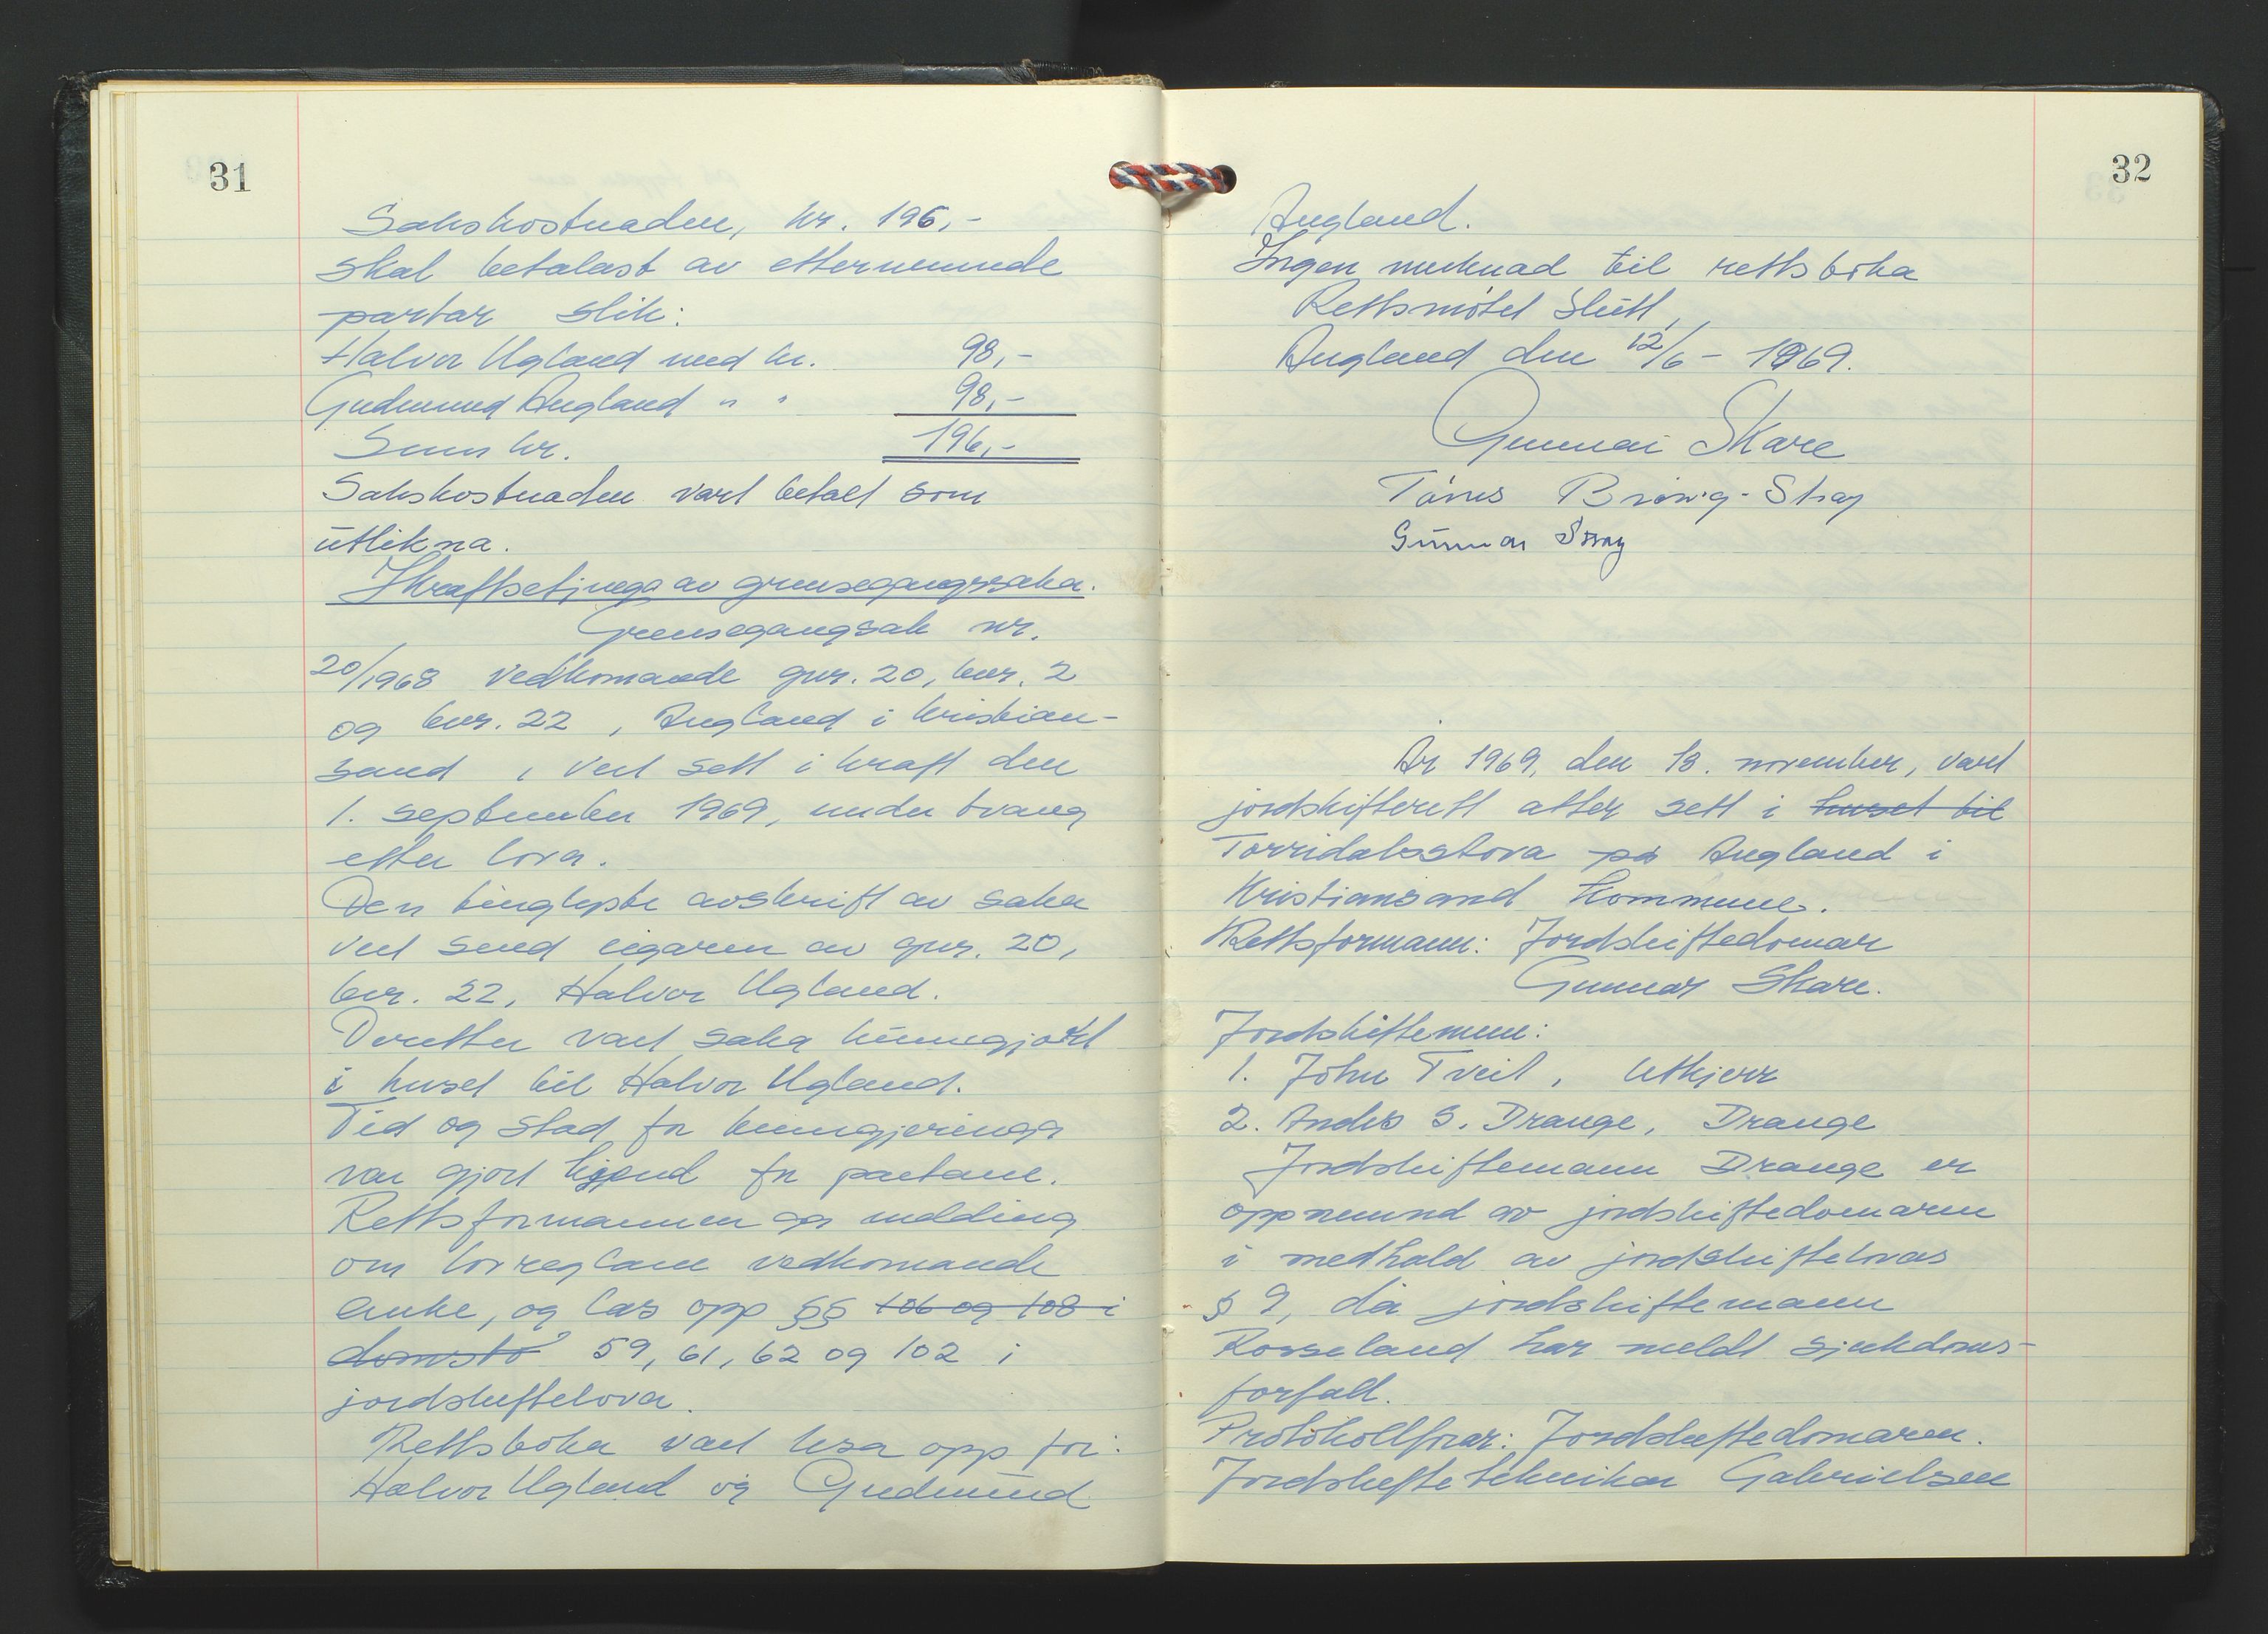 31
Sakskostnaden, kr. 196,-
skal betalast av etternemnde
partar slik:
Halvor Ugland med kr. 98,-
Gudmund Augland " " 98,-
Sum kr. 196,-
Sakskostnaden vart betalt som
utlikna.
Ikraftsetjinga av grensegangssaka.
Grensegangsak nr.
20/1968 vedkomande gnr. 20, bnr. 2
og bnr. 22, Augland i Kristian-
sand, vert sett i kraft den
1. september 1969, under tvang
etter lova.
Den tinglyste avskrift av saka
vert send eigaren av gnr. 20,
bnr. 22, Halvor Ugland.
Deretter vart saka kunngjort
i huset til Halvor Ugland.
Tid og stad for kunngjeringa
var gjort kjend for partane.
Rettsformannen ga melding
om lovreglane vedkomande
anke, og las opp §§ 106 og 108 i
domsto 59, 61, 62 og 102 i
jordskiftelova.
Rettsboka vart lesa opp for:
Halvor Ugland og Gudmund
32
Augland.
Ingen merknad til rettsboka
Rettsmøtet slutt,
Augland den 12/6 - 1969.
Gunnar Skare
Tønnes Brøvig-Stray
Gunnar Stray
År 1969, den 18. november, vart
jordskifterett atter sett i huset til
Torridalsstova på Augland i
Kristiansand kommune.
Rettsformann: Jordskiftedomar
Gunnar Skare.
Jordskiftemenn:
1. John Tveit, Utkjerr
2. Anders S. Drange, Drange
Jordskiftemann Drange er
oppnemnd av jordskiftedomaren
i medhald av jordskiftelovas
§ 9, då jordskiftemann
Rosseland har meldt sjukdoms-
forfall.
Protokollførar: Jordskiftedomaren.
Jordskifteteknikar Gabrielsen